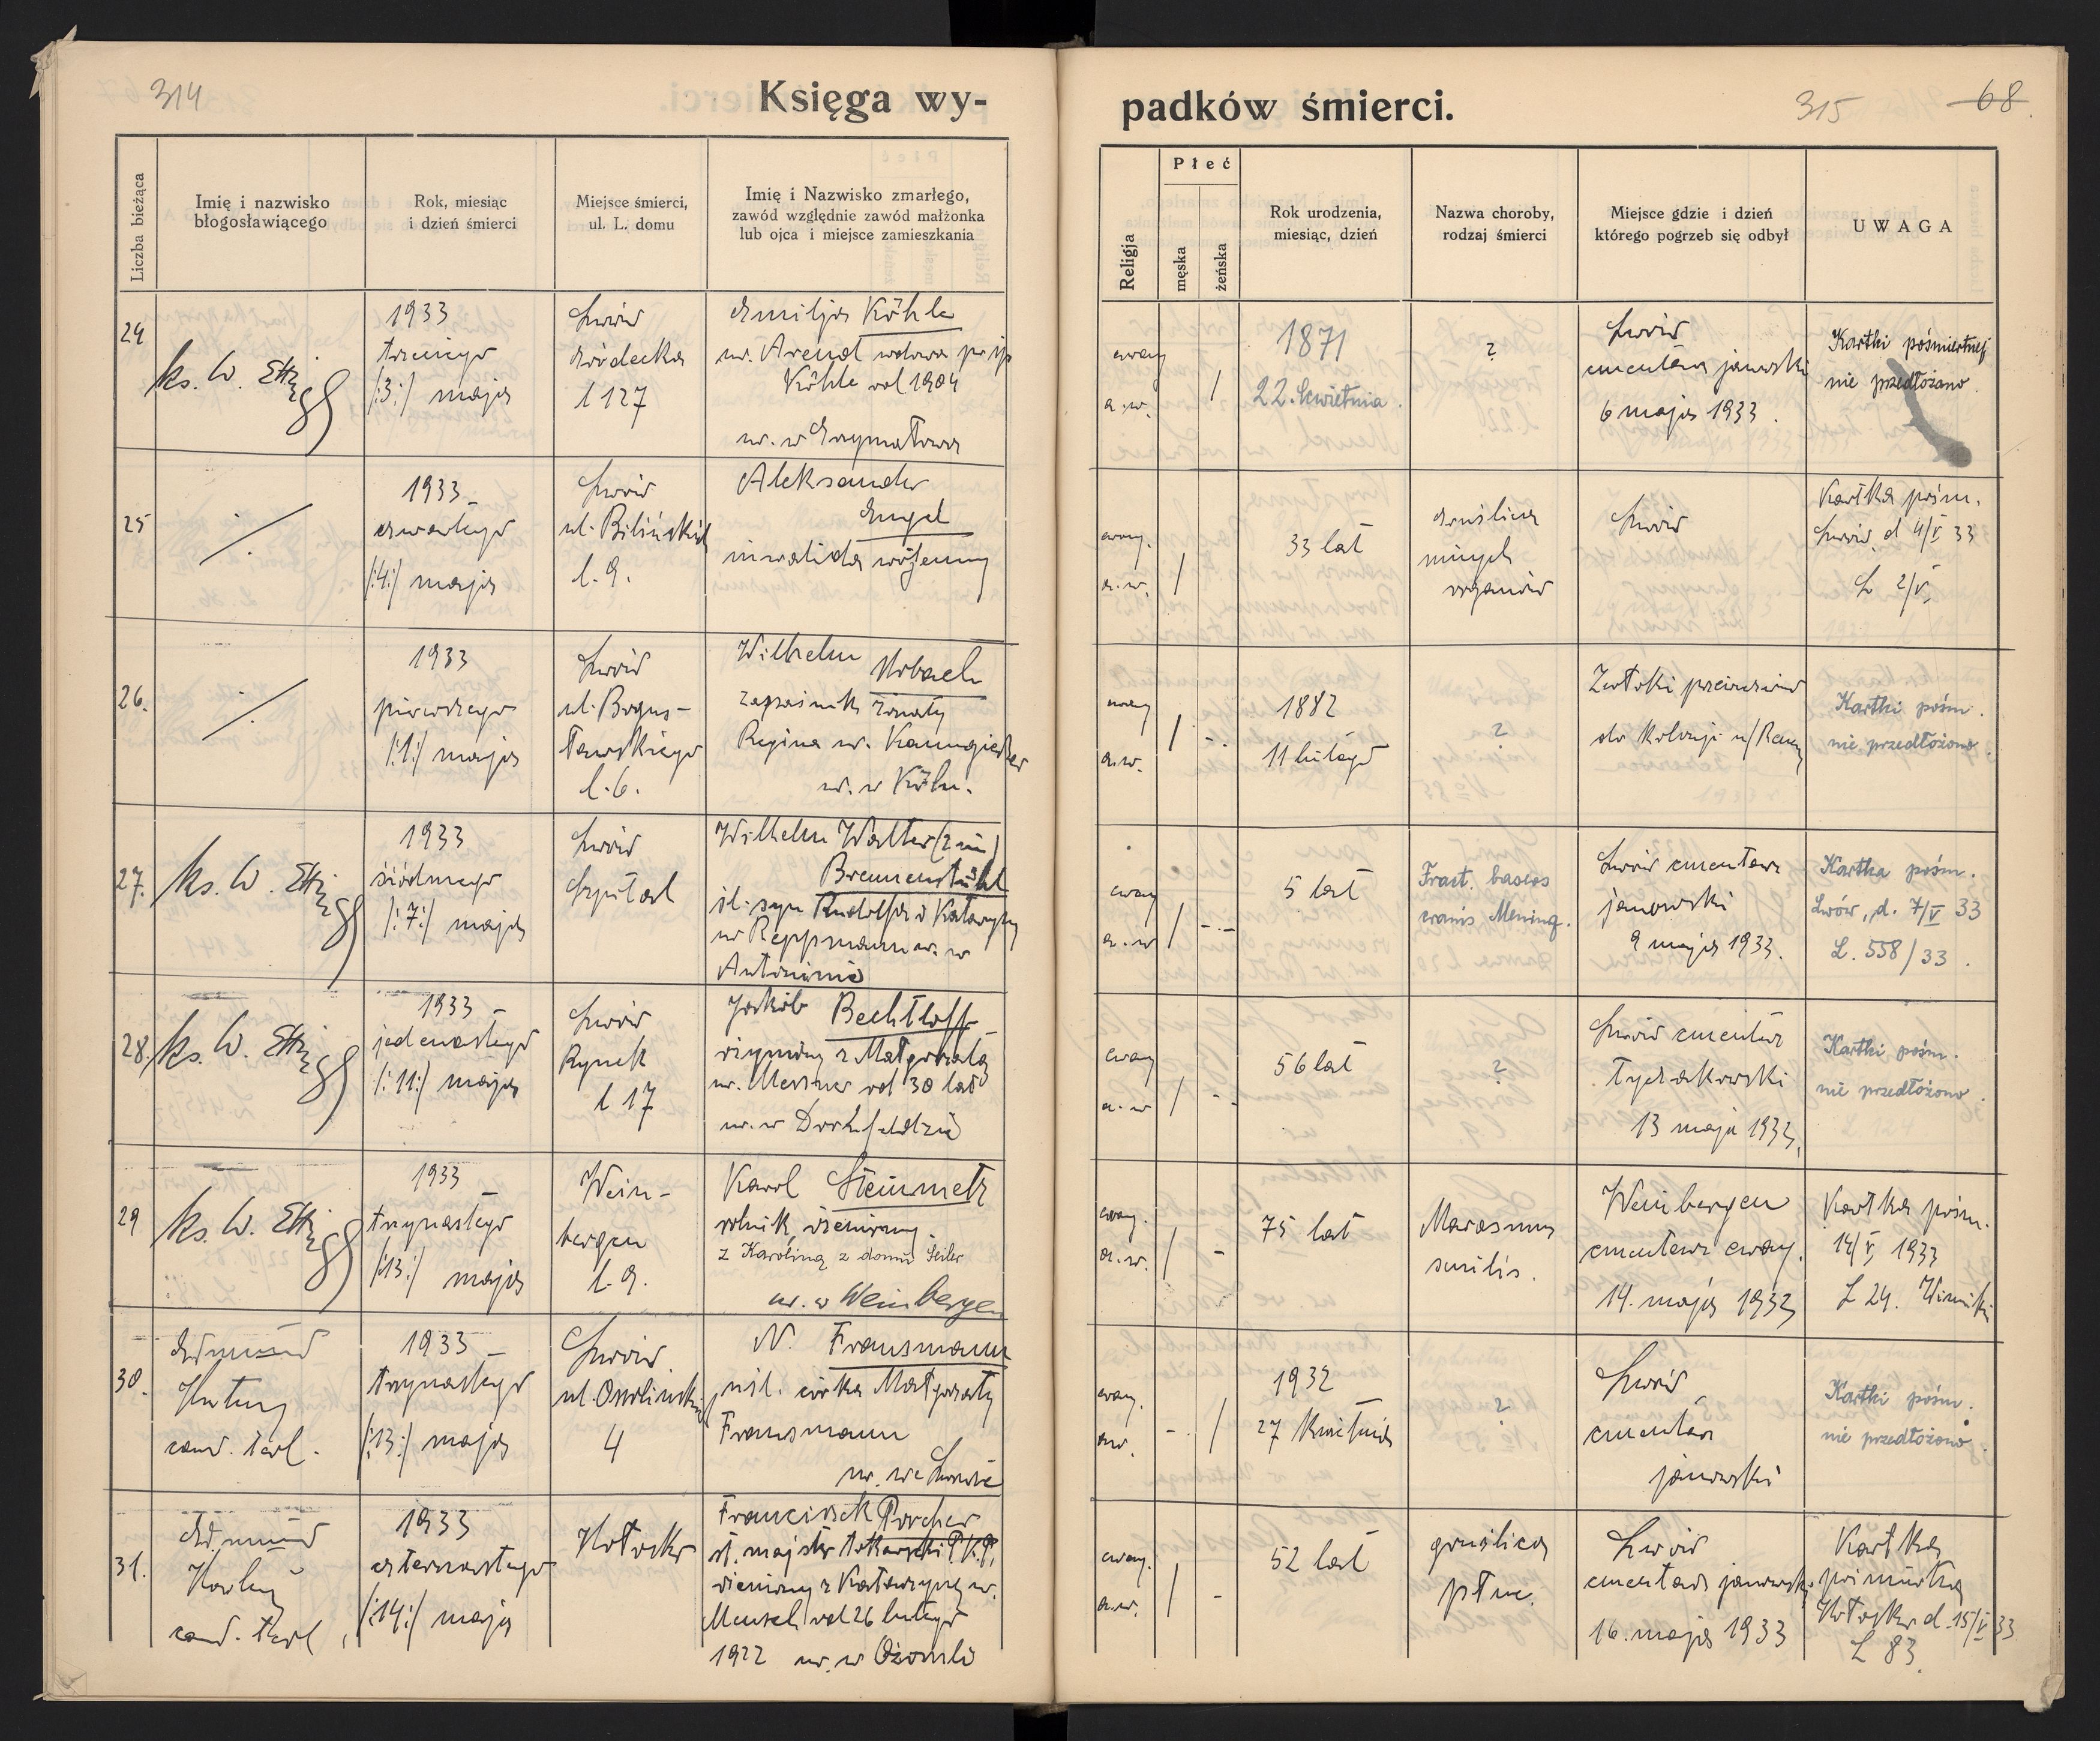 314
Księga wy-
Liczba bieżąca
Imię i nazwisko
błogosławiącego
Rok, miesiąc
i dzień śmierci
Miejsce śmierci,
ul. L. domu
Imię i Nazwisko zmarłego,
zawód względnie zawód małżonka
lub ojca i miejsce zamieszkania
24
ks. W. Ettinger
1933
trzeciego
/:3:/ maja
Lwów
Gródecka
l 127
Emilja Köhle
ur. Arend wdowa po śp
Köhle od 1904
ur. w Grzymałowa
25
1933
czwartego
/:4:/ maja
Lwów
ul. Bilińskich
l. 9.
Aleksander
Engel
inwalida wojenny
26.
1933
pierwszego
/:1:/ maja
Lwów
ul. Bogus-
ławskiego
l. 6.
Wilhelm Urbach
zapaśnik żonaty
Regina ur. Kanngießer
ur. w Köln.
27.
ks. W. Ettinger
1933
siódmego
/:7:/ maja
Lwów
Szpital
Wilhelm Walter (2 im)
Bremenstuhl
śl. syn Rudolfa i Katarzyny
ur Reppmann ur. w
Antoninie
28.
ks. W. Ettinger
1933
jedenastego
/:11:/ maja
Lwów
Rynek
l 17
Jakób Bechtloff
ożeniony z Małgorzatą
ur. Messner od 30 lat
ur. w Dornfeldzie
29
ks. W. Ettinger
1933
trzynastego
/:13:/ maja
Wein-
bergen
l. 9.
Karol Steinmetz
rolnik, ożeniony
z Karoliną z domu Seiler
ur. w Weinbergen
30.
Edmund
cand. teol.
1933
trzynastego
/:13:/ maja
Lwów
ul. Ossolińskich
4
N. Fransmann
nśl. córka Małgorzaty
Fransmann
ur. we Lwowie
31.
Edmund
cand. teol.
1933
czternastego
/:14:/ maja
Hołosko
Franciszek Porcher
st. majster tokarski P.K.P.
ożeniony z Katarzyną ur.
Mensch od 26 lutego
1922 ur. w Ożomli
padków śmierci.
315
68
Religja
Płeć
męska
żeńska
Rok urodzenia,
miesiąc, dzień
Nazwa choroby,
rodzaj śmierci
Miejsce gdzie i dzień
którego pogrzeb się odbył
UWAGA
ewang
a. w.
/
1871
22. kwietnia.
?
Lwów
cmentarz janowski
6 maja 1933.
Kartki pośmiertnej
nie przedłożono.
ewang.
a. w.
/
33 lat
gruźlica
innych
organów
Lwów
Kartka pośm.
Lwów d 4/V 33
L 2/V
ewang
a. w.
/
1882
11 lutego
?
Zwłoki przewieziono
do Kolonji n/Renem
Kartki pośm.
nie przedłożono.
ewang
a. w
/
5 lat
Fract. baseos
cranis Mening.
Lwów cmentarz
janowski
9 maja 1933.
Kartka pośm.
Lwów, d. 7/V 33
L. 558/33.
ewang
a. w
/
56 lat
?
Lwów cmentarz
łyczakowski
13 maja 1933.
Kartki pośm.
nie przedłożono.
ewang.
a. w.
/ -
75 lat
Marasmus
senilis.
Weinbergen
cmentarz ewang.
14. maja 1933
Kartka pośm.
14/V 1933
L 24. Winniki
ewang.
aw.
- /
1932
27 kwietnia
?
Lwów
cmentarz
janowski
Kartki pośm.
nie przedłożono.
ewang.
a. w.
/ -
52 lat
gruźlica
płuc.
Lwów
cmentarz janowski
16. maja 1933
Kartka
pośmiertna
Hołosko d. 15/V 33
L 83.